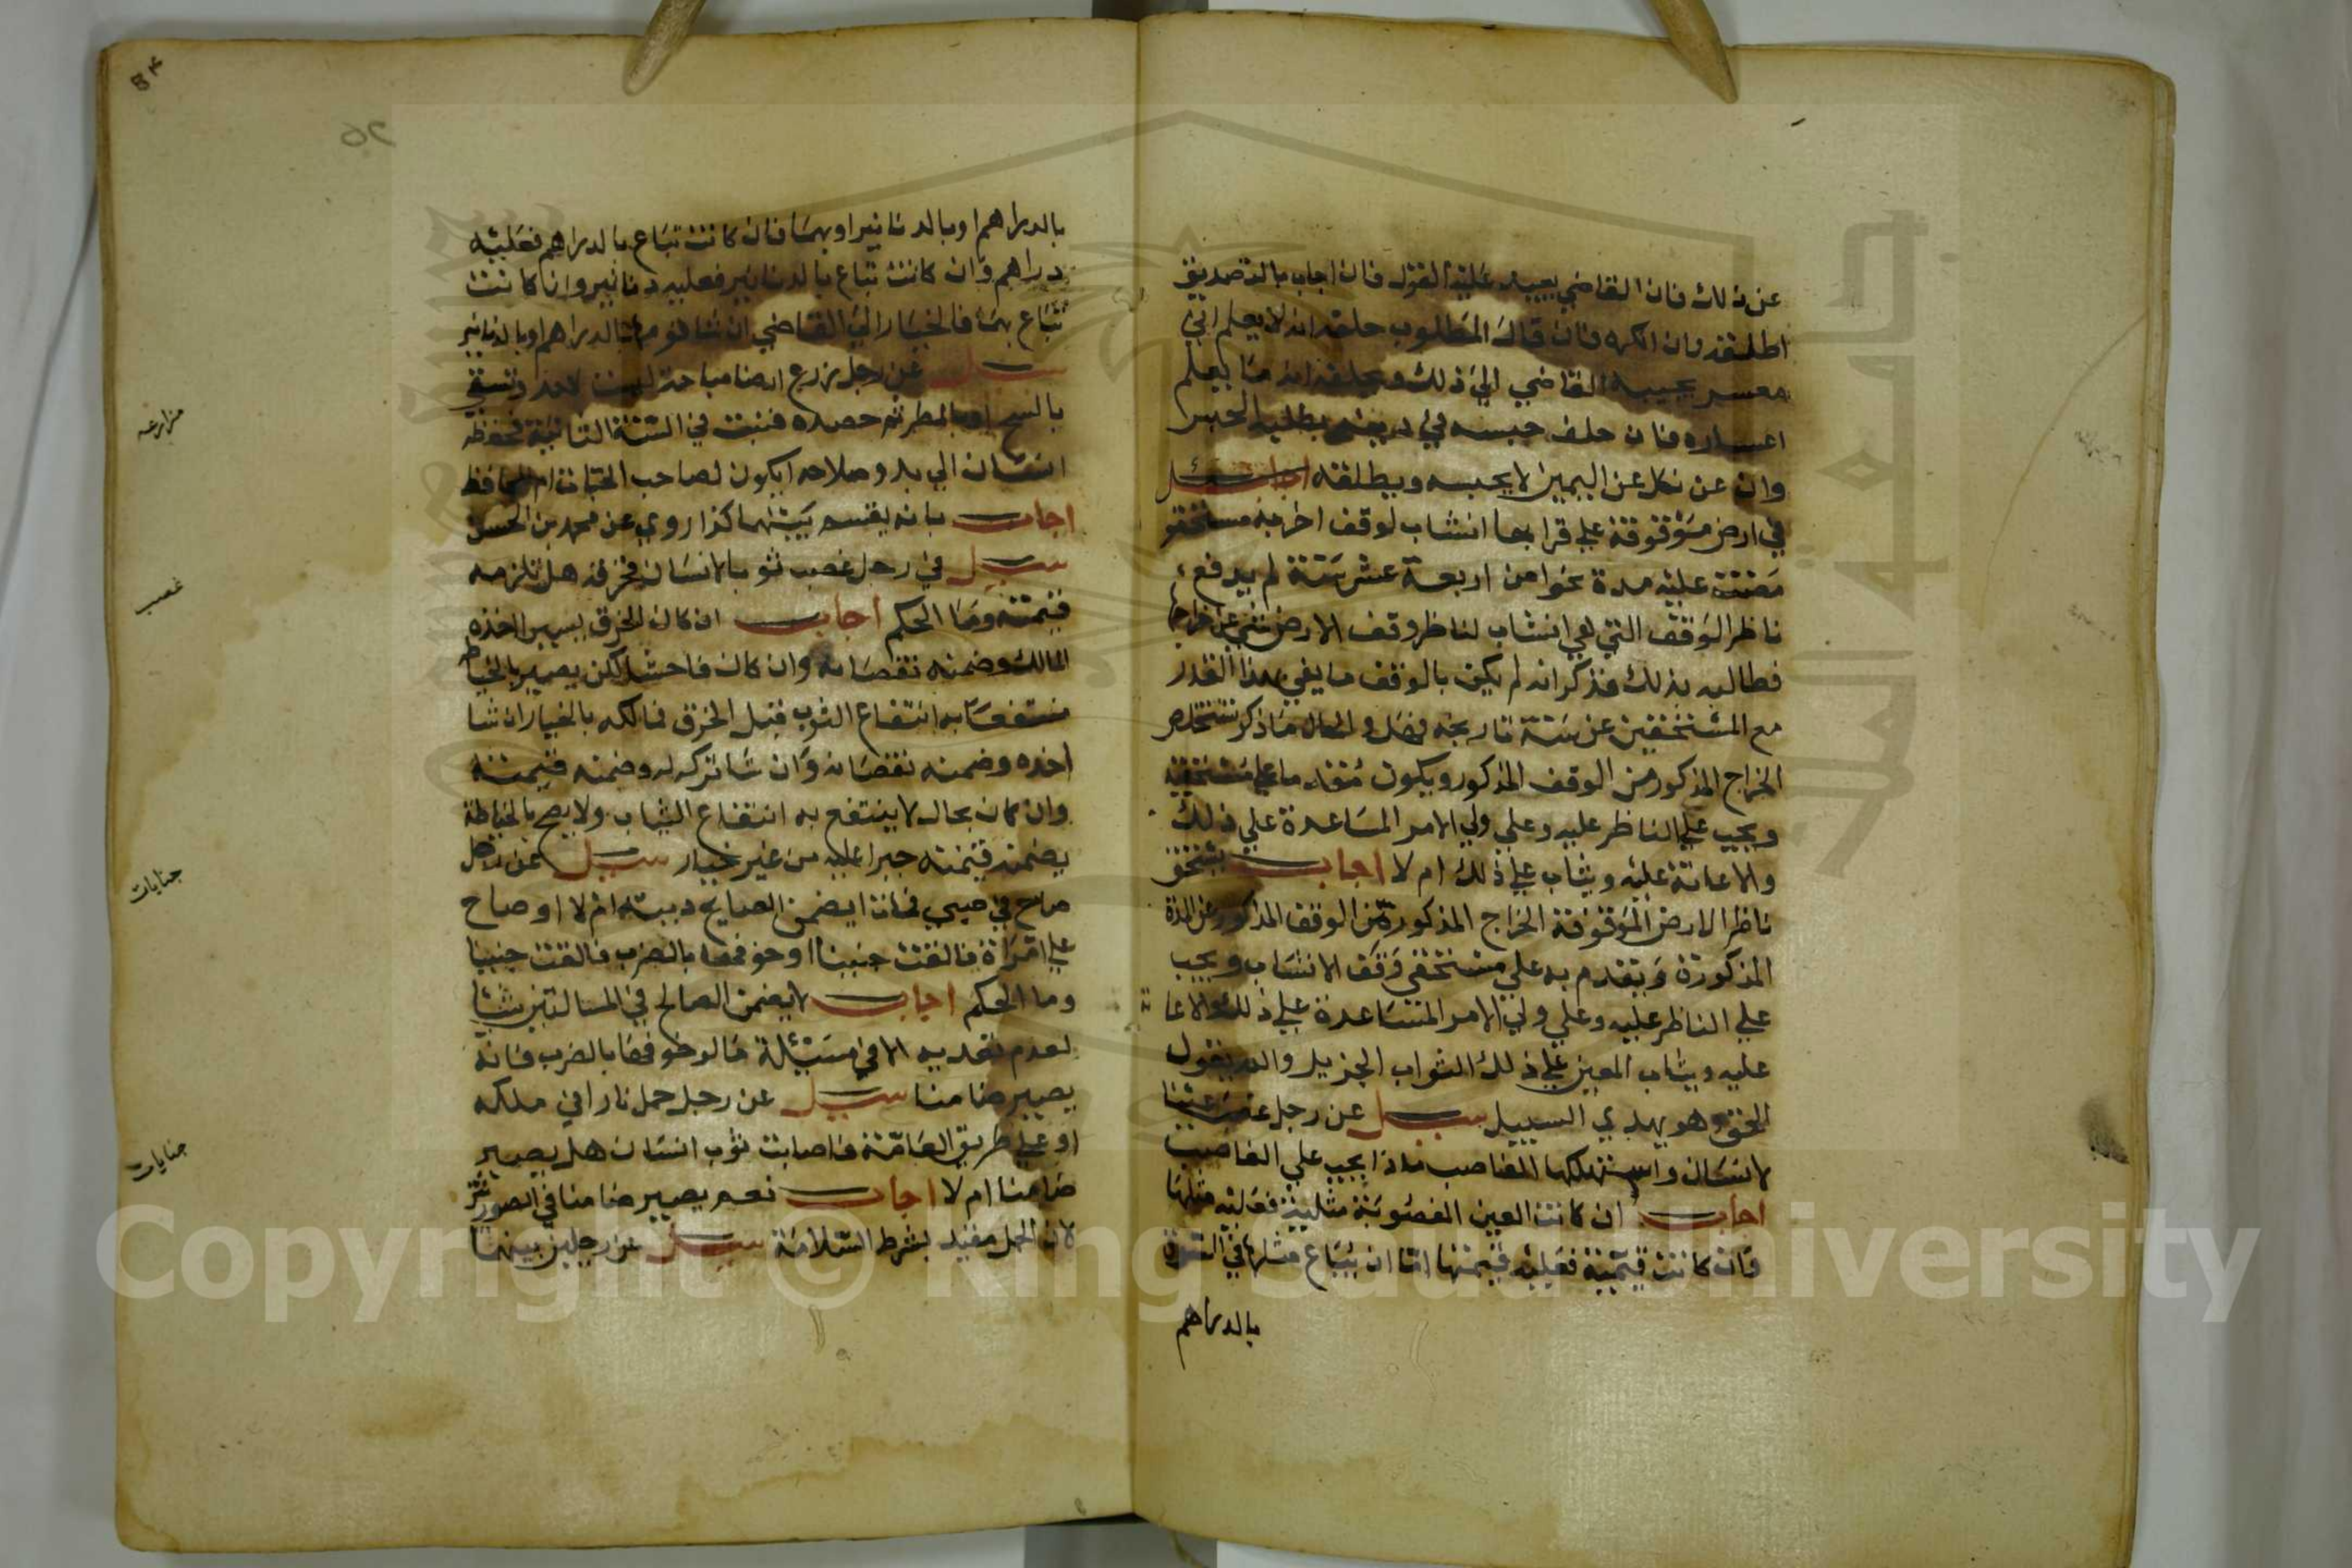 عن ذلك فان القاضي يعيد عليه القول فان اجاب بالتصديق
اطلقه وان انكره فان قال المطلوب حلفه انه لا يعلم اني
معسر يجيبه القاضي الي ذلك ويحلفه انه ما يعلم
اعساره فان حلف حبسه في دينه بطلبه الحبس
وان عن نكل عن اليمين لا يحبسه ويطلقه
في ارض موقوفة علي قرا بها انشاب لوقف اخر به مستحقو
مضت عليه مدة نحوا من اربعة عشر سنة لم يدفع
ناظر الوقف التي هي انشاب لناظر وقف الارض شي عن خراجها
فطالبه بذلك فذكر انه لم يكن بالوقف ما يفي بهذا القدر
مع المستحقين عن سنة تاريخه فهل والحال ما ذكر يستخلص
الخراج المذكور من الوقف المذكور ويكون مقدما علي مستحقيه
ويجب علي الناظر عليه وعلي ولي الامر المساعدة علي ذلك
والاعانة عليه ويثاب علي ذلك ام لا اجاب يستحق
ناظر الارض الموقوفة الخراج المذكورة من الوقف المذكور عن المدة
المذكورة ويتقدم به علي مستحقي وقف الانشاب ويجب
علي الناظر عليه وعلي ولي الامر المساعدة علي ذلك والاعانة
عليه ويثاب المعين علي ذلك الثواب الجزيل والله يقول
الحق وهو يهدي السبيل سيل عن رجل غصب عينا
لانسان واستهلكها الغاصب ماذا يجب علي الغاصب
اجاب ان كانت العين المغصوبة مثلية فعليه مثلها
وان كانت قيمية فعليه قيمتها اما ان يباع مثلها في السوق
بالدراهم
54
52
بالدراهم او بالدنانير او بهما فان كانت تباع بالدراهم فعليه
دراهم وان كانت تباع بالدنانير فعليه دنانير وان كانت
تباع بهما فالخيار الي القاضي ان شا قومها بالدراهم او بالدنانير
سيل عن رجل زرع ارضا مباحة ليست لاحد وتسقي
بالسيح او بالمطر ثم حصده فنبت في السنة الثانية فحفظه
انسان الي بدو صلاحه ايكون لصاحب الحبات ام للحافظ
اجاب بانه يقسم بينهما كذا روي عن محمد بن الحسن
سيل في رجل غصب ثوبا لانسان فخرقه هل تلزمه
قيمته وما الحكم اجاب ان كان الخرق يسيرا اخذه
المالك وضمنه نقصانه وان كان فاحشا لكن يصير بالخياط
منتفعا به انتفاع الثوب قبل الخرق فمالكه بالخيار ان شا
اخذه وضمنه نقصانه وان شا تركه له وضمنه قيمته
وان كان بحال لا ينتفع به انتفاع الثياب ولا يصح بالخياطة
يضمنه قيمته جبرا عليه من غير خيار سيل عن رجل
صاح في صبي فمات ايضمن الصايح ديته ام لا او صاح
علي امراة فالقت جنينا او خوفها بالضرب فالقت جنينا
وما الحكم اجاب لا يضمن الصالح في المسالتين شيئا
لعدم تعديه الا في مسئلة ما لو خوفها بالضرب فانه
يصير ضامنا سيل عن رجل حمل نارا في ملكه
او علي طريق العامة فاصابت ثوب انسان هل يصير
ضامنا ام لا اجاب نعم يصير ضامنا في الصورتين
لان الحمل مقيد بشرط السلامة سيل عن رجلين بينهما
مزارعه
غصب
جنايات
جنايات
Copyright © King Saud University